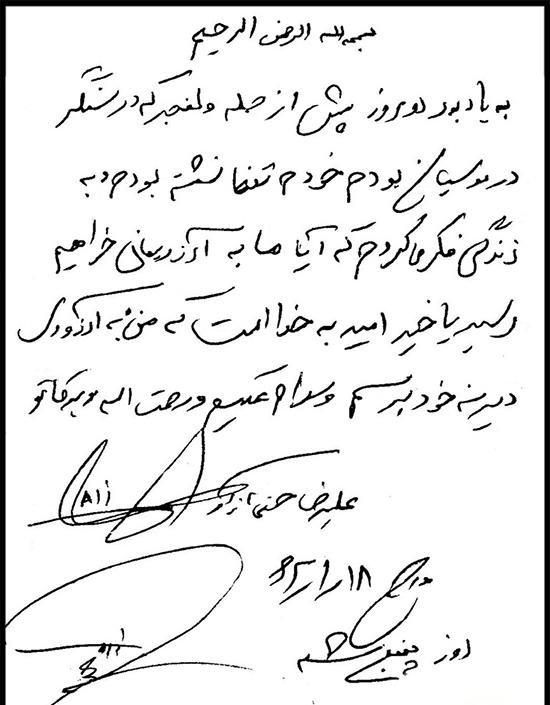 بسم الله الرحمن الرحیم
به یاد بود دو روز پیش از حمله والفجر که در سنگر
در موسیان بودم خودم تنها نشسته بودم و به
زندگی فکر می‌کردم که آیا ما به آرزویمان خواهیم
رسید یا خیر امید به خدا است که من به آرزوی
دیرینه خود برسم والسلام علیکم و رحمت الله و برکاتو
علیرضا
Ali
۱۸/۱/۶۲
روز پنجشنبه